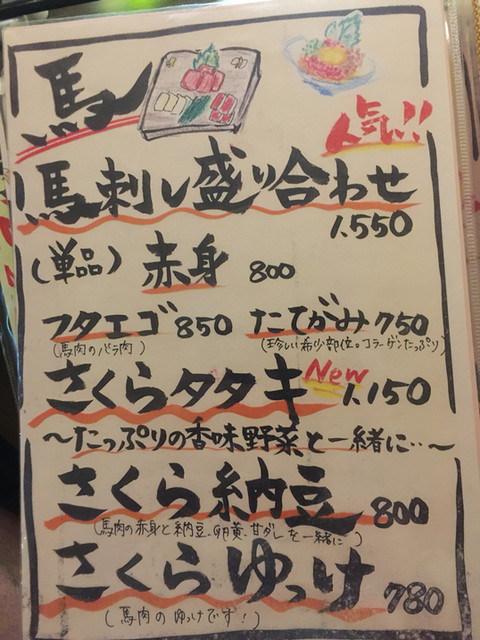 馬
人気!!
馬刺し盛り合わせ
1,550
(単品) 赤身 800
フタエゴ 850 たてがみ 750
(馬肉のバラ肉) (珍しい希少部位。コラーゲンたっぷり)
さくらタタキ New 1,150
〜たっぷりの香味野菜と一緒に…〜
さくら納豆 800
(馬肉の赤身と納豆、卵黄、甘ダレを一緒に)
さくらゆっけ 780
(馬肉のゆっけです!)